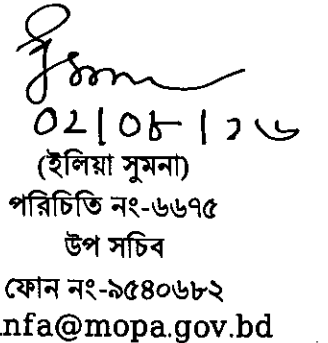 (ইলিয়া সুমনা)
পরিচিতি নং-৬৬৭৫
উপ সচিব
ফোন নং-৯৫৪০৬৮২
nfa@mopa.gov.bd